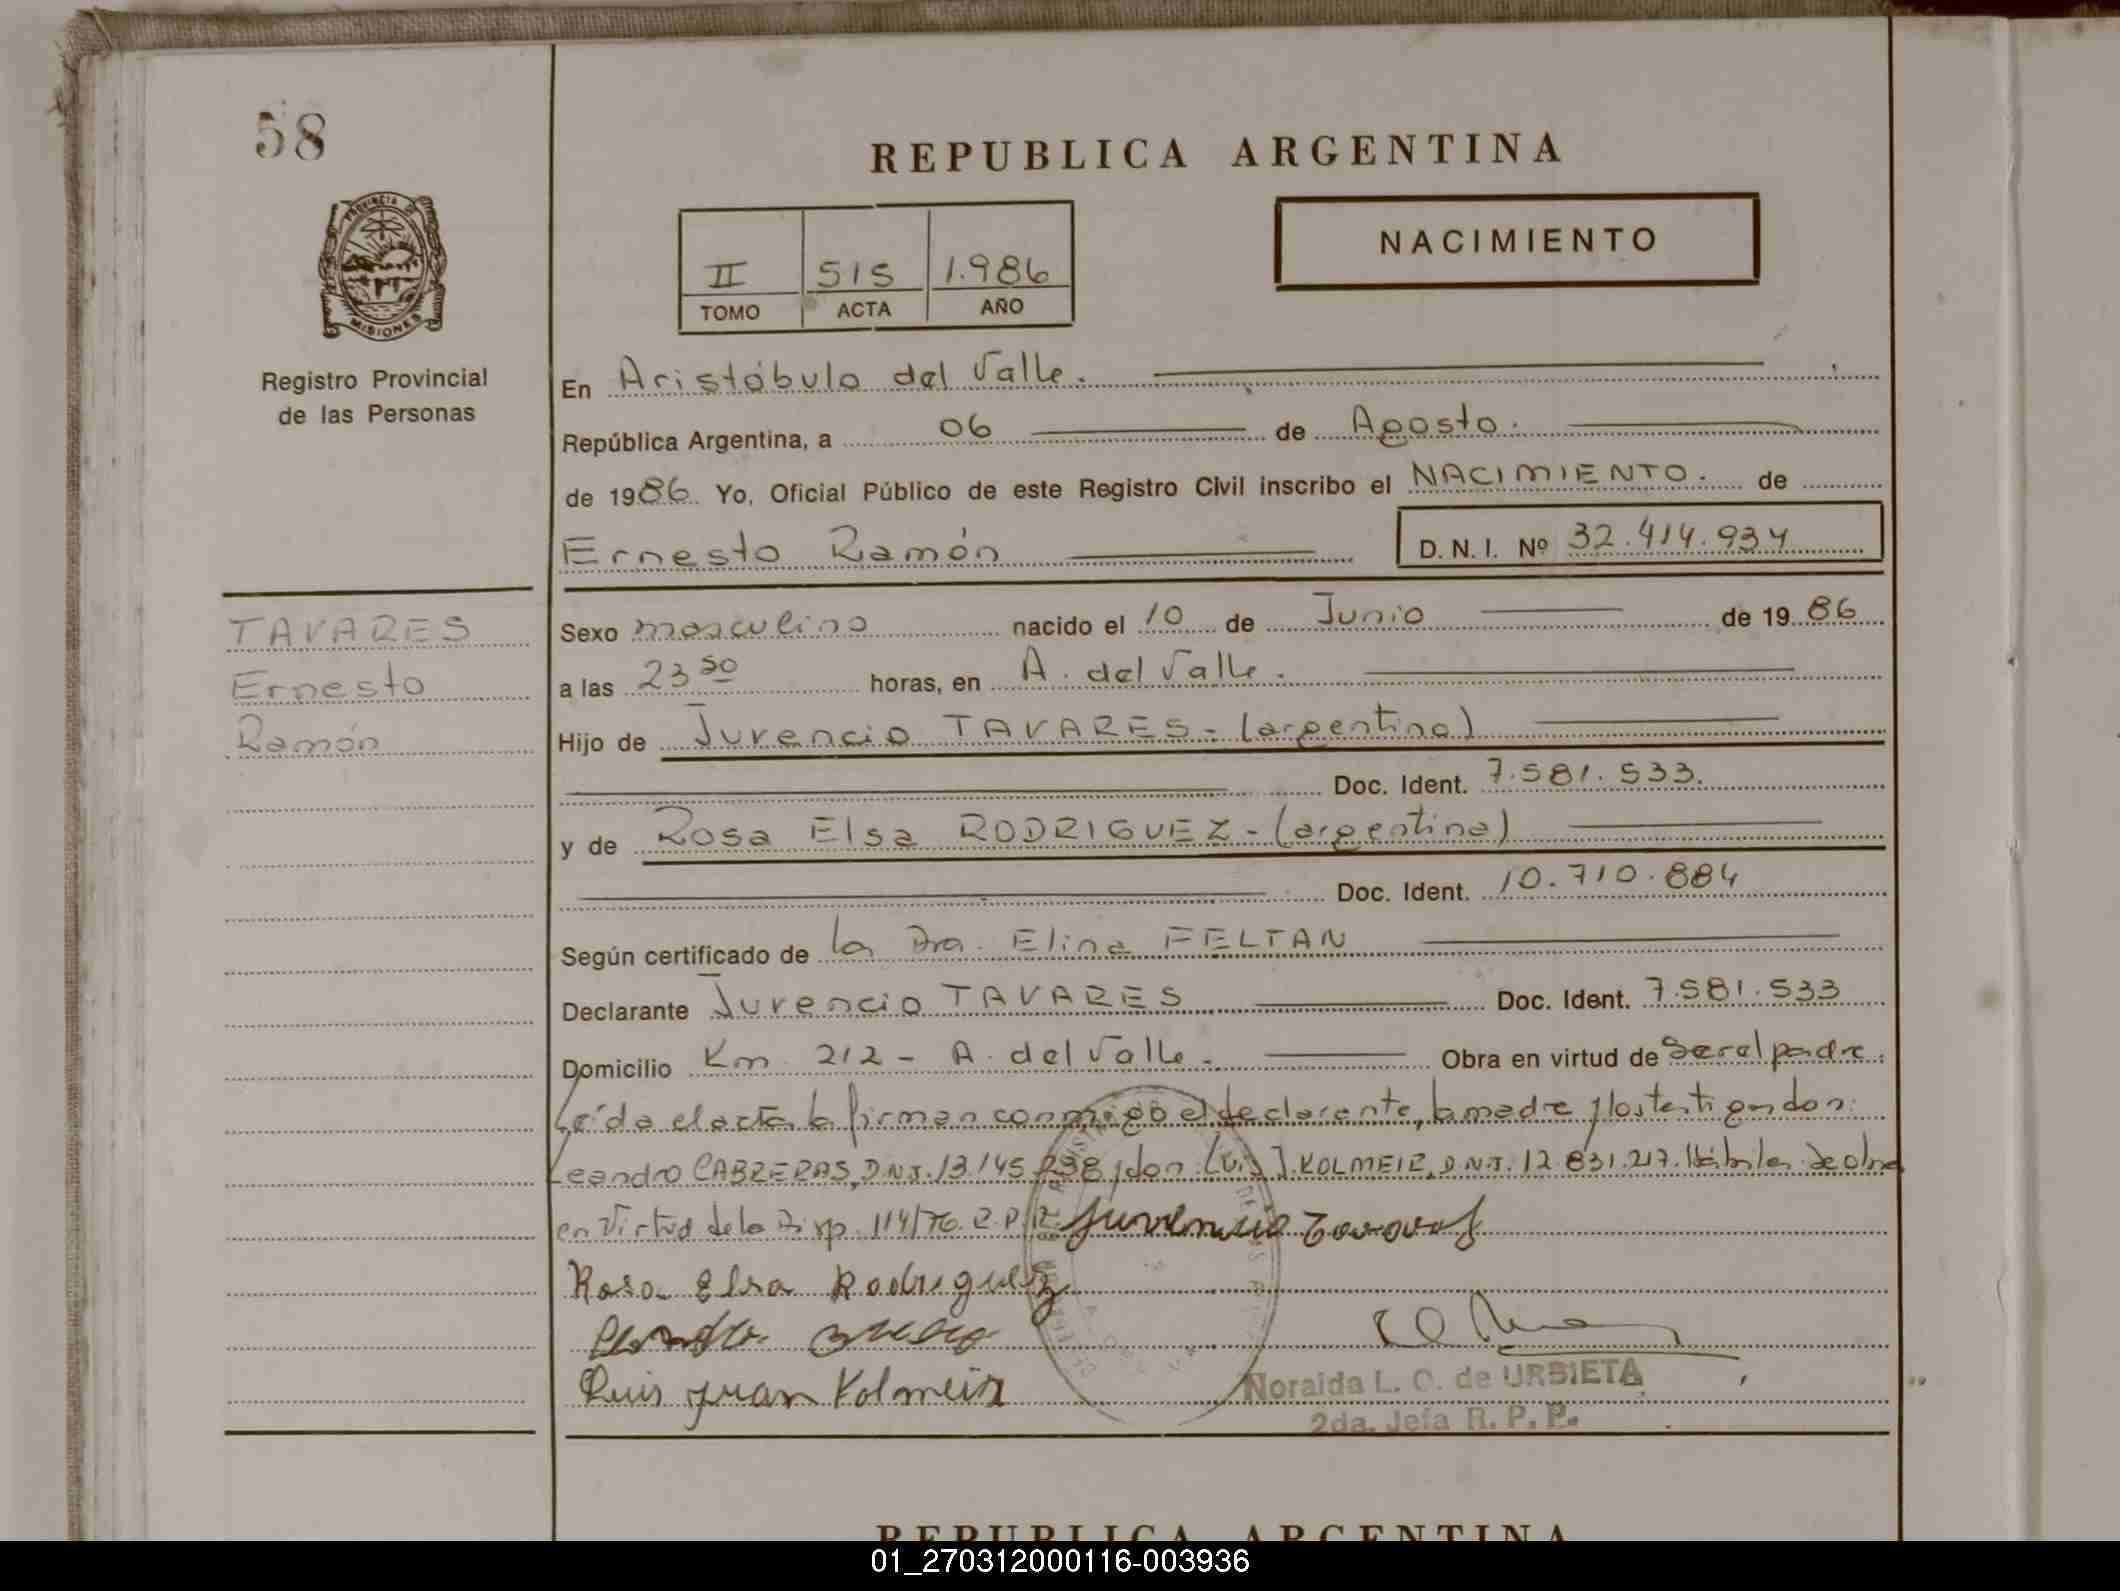 58
REPUBLICA ARGENTINA
NACIMIENTO
II 515 1.986
TOMO ACTA AÑO
PROVINCIA DE MISIONES
Registro Provincial
de las Personas
En Aristóbulo del Valle.
República Argentina, a 06 de Agosto.
de 1986. Yo, Oficial Público de este Registro Civil inscribo el NACIMIENTO. de
Ernesto Ramón D. N. I. Nº 32.414.934
TAVARES
Ernesto
Ramón
Sexo masculino nacido el 10 de Junio de 1986
a las 23 50 horas, en A. del Valle.
Hijo de Juvencio TAVARES - (argentino)
Doc. Ident. 7.581.533.
y de Rosa Elsa RODRIGUEZ - (argentina)
Doc. Ident. 10.710.884
Según certificado de la Dra. Elina FELTAN
Declarante Juvencio TAVARES Doc. Ident. 7.581.533
Domicilio Km 212 - A. del Valle. Obra en virtud de ser el padre.
Leída el acta la firman conmigo el declarante, la madre y los testigos don:
Leandro CABRERAS, D.N.I. 13.145.238 y don Luis J. KOLMEIR, D.N.I. 12.831.217. Hábiles. Se obra
en virtud de la Disp. 114/76. R.P.P. Juvencio Tavares
Rosa Elsa Rodriguez
Luis Juan Kolmeir
Noraida L. O. de URBIETA
2da. Jefa R. P. P.
REPUBLICA ARGENTINA
01_270312000116-003936